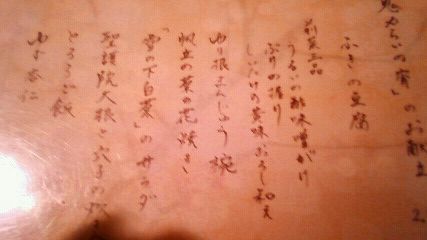 の宵」のお献立
ふきの豆腐
前菜三品
うるいの酢味噌がけ
ぶりの
しいたけの黄味おろし和え
ゆり根まんじゅう椀
帆立の菜の花焼き
「雪の下白菜」のサラダ
聖護院大根と穴子の炊き
とろろご飯
ゆず杏仁